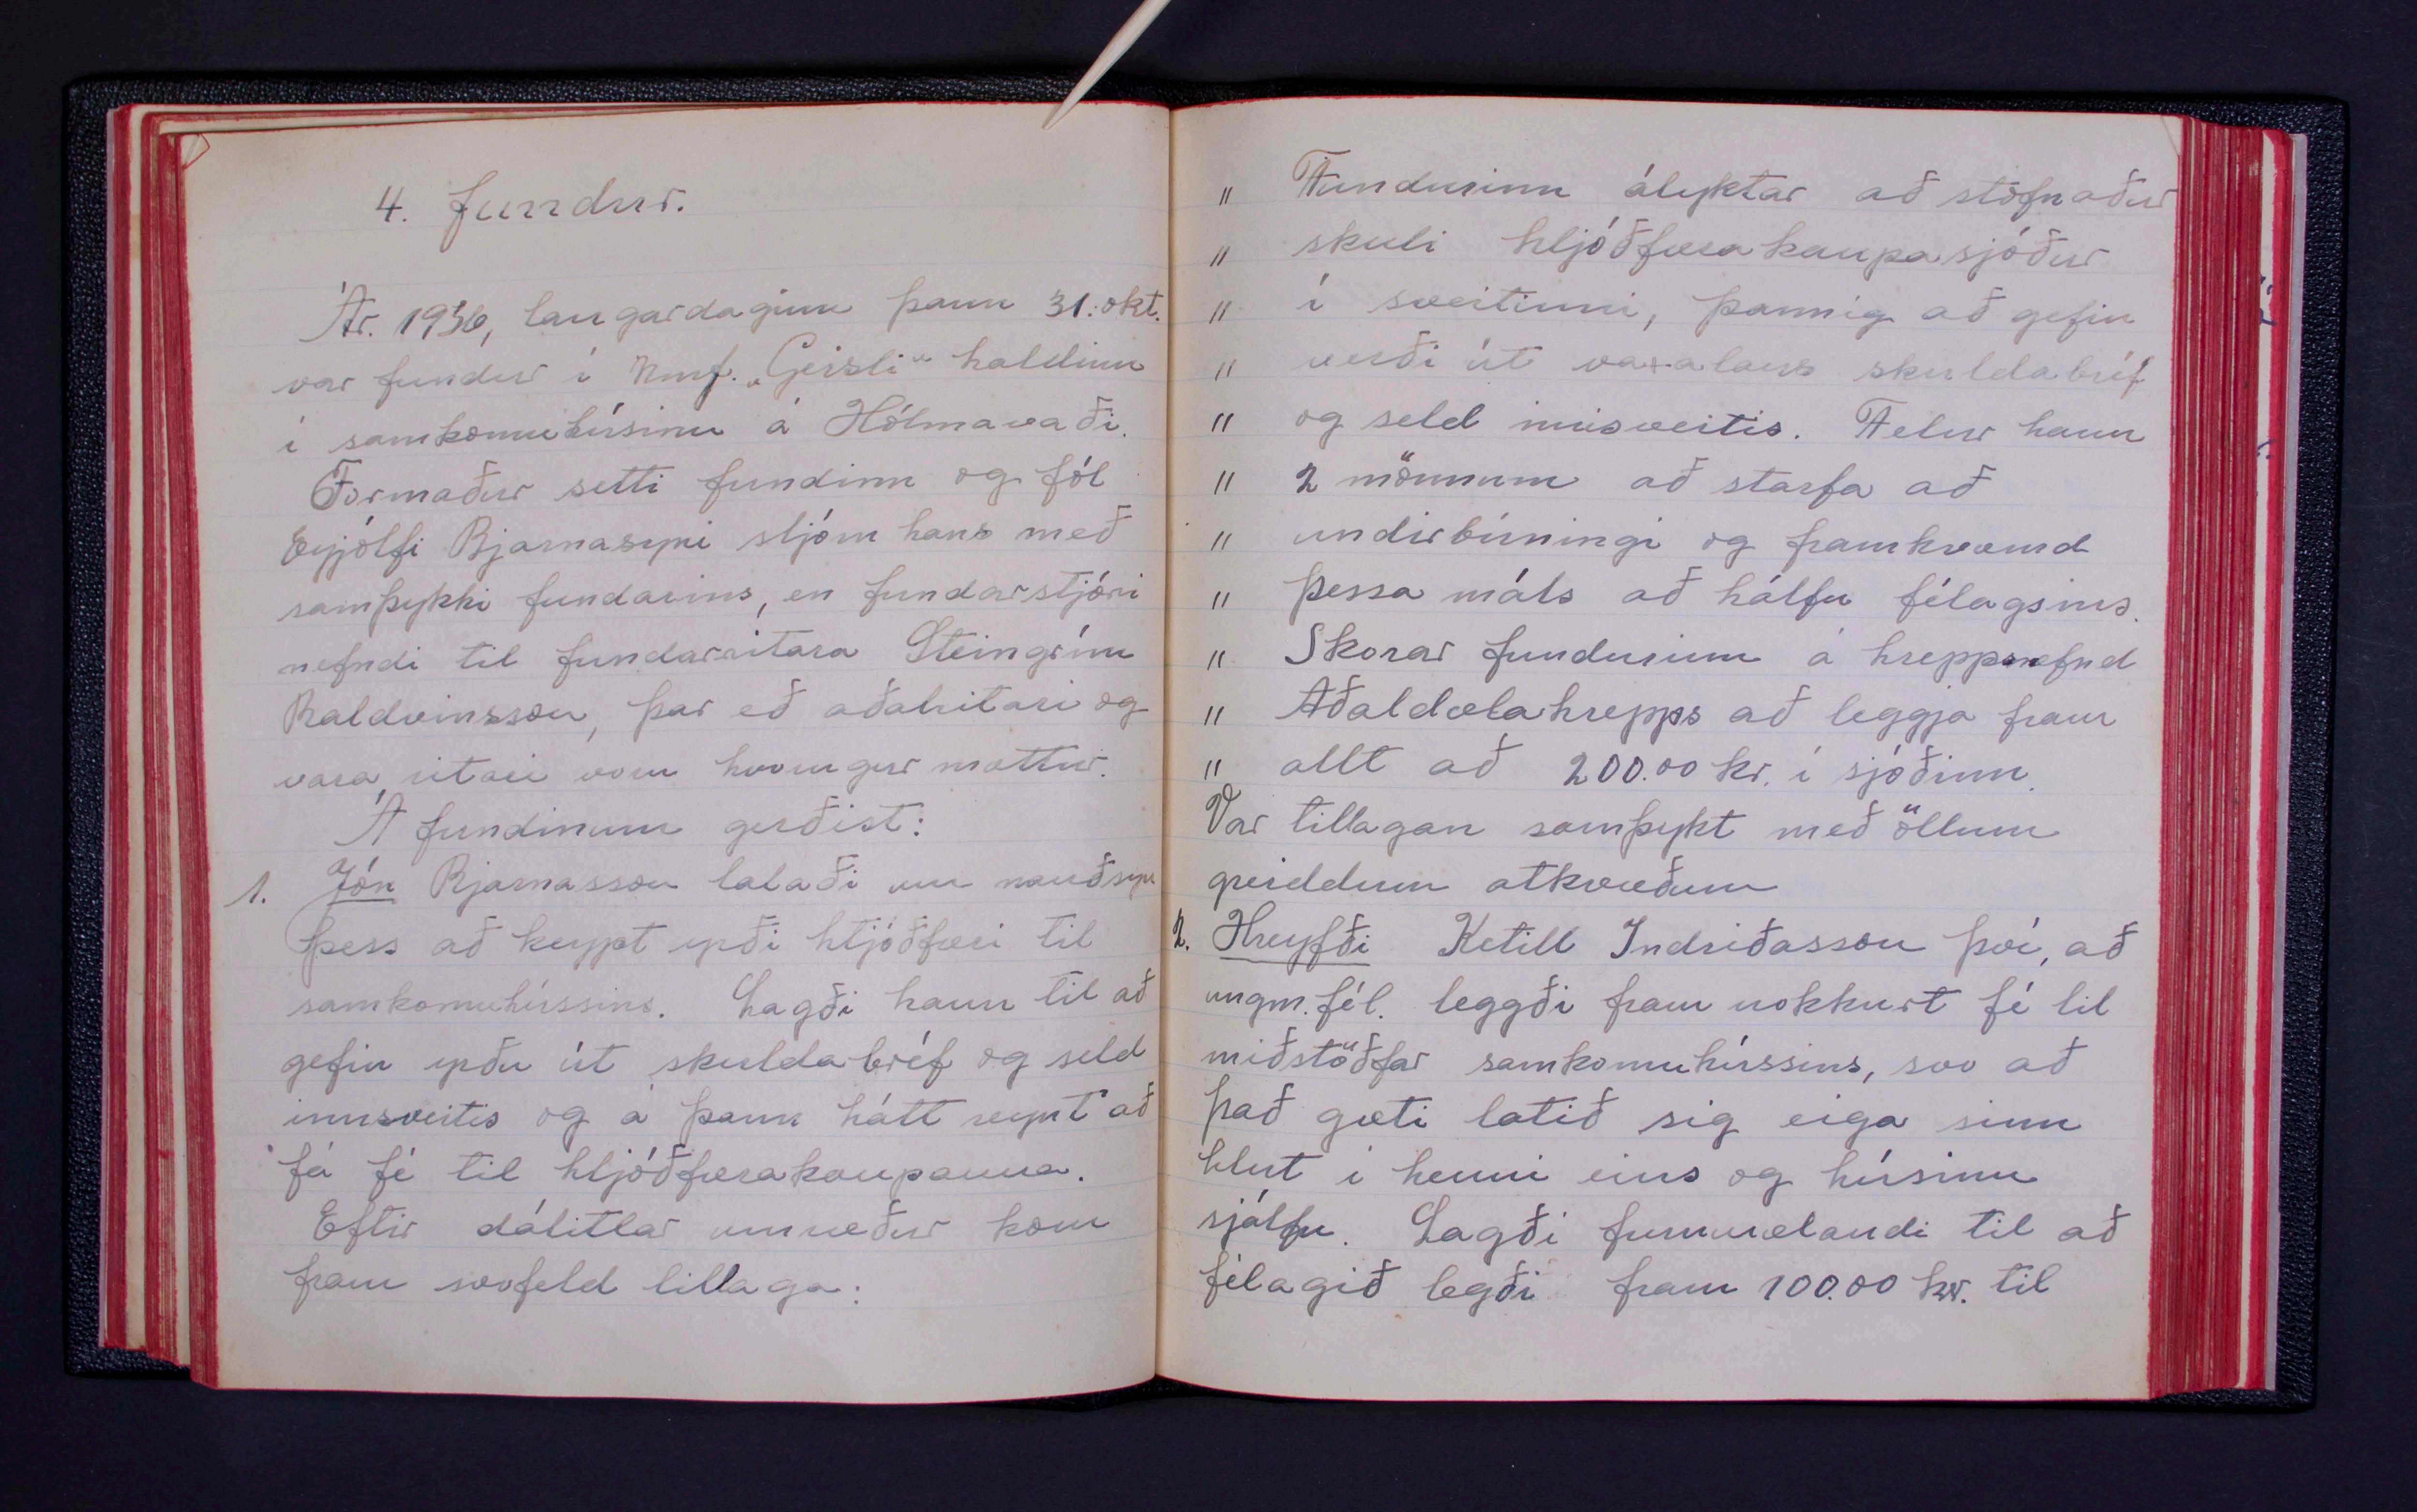 4. fundur.
Ár. 1936, laugardaginn þann 31. okt.
var fundur í Umf. „Geisli“ haldinn
í samkomuhúsinu á Hólmavaði.
Formaður setti fundinn og fól
Eyjólfi Bjarnasyni stjórn hans með
samþykki fundarins, en fundarstjóri
nefndi til fundarritara Steingrím
Baldvinsson, þar eð aðalritari og
vara ritari voru hvorugur mættur.
Á fundinum gerðist:
1. Jón Bjarnasson talaði um nauðsyn
þess að keypt yrði hljóðfæri til
samkomuhússins. Lagði hann til að
gefin yrðu út skuldabréf og seld
innsveitis og á þann hátt reynt að
fá fé til hljóðfærakaupanna.
Eftir dálitlar umræður kom
fram svofeld tillaga:
" Fundurinn ályktar að stofnaður
" skuli hljóðfærakaupasjóður
" í sveitinni, þannig að gefin
" verði út vaxalaus skuldabréf
" og seld innsveitis. Felur hann
" 2 mönnum að starfa að
" undirbúningi og framkvæmd
" þessa máls að hálfu félagsins.
" Skorar fundurinn á hreppsnefnd
" Aðaldælahrepps að leggja fram
" allt að 200.00 kr. í sjóðinn.
Var tillagan samþykt með öllum
greiddum atkvæðum
2. Hreyfði Ketill Indriðasson því, að
ungm. fél. leggði fram nokkurt fé til
miðstöðfar samkomuhússins, svo að
það gæti látið sig eiga sinn
hlut í henni eins og húsinu
sjálfu. Lagði frummælandi til að
félagið legði fram 100.00 kr. til